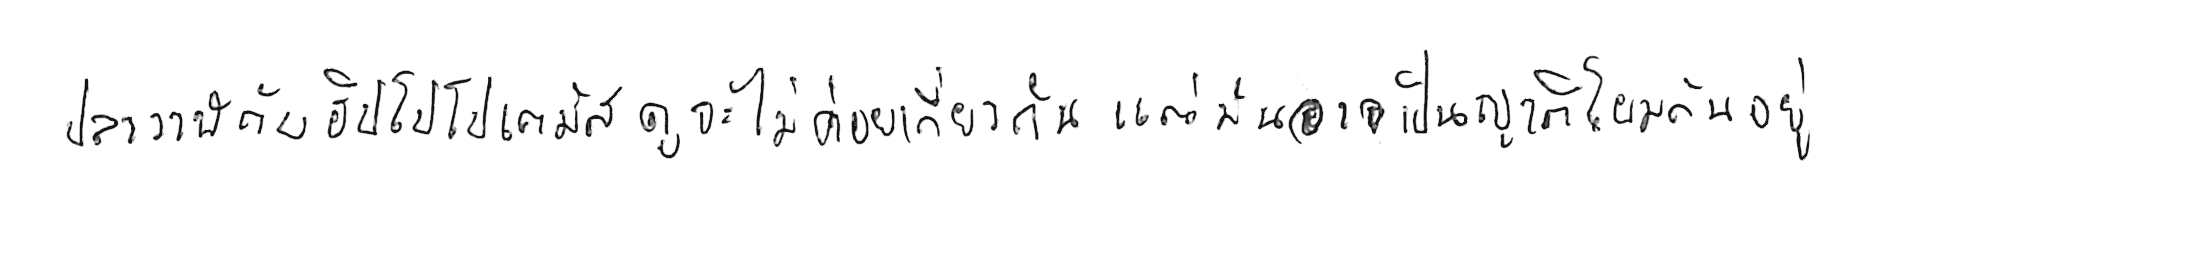 ปลาวาฬกับฮิปโปโปเตมัสดูจะไม่ค่อยเกี่ยวกัน แต่มันอาจเป็นญาติโยมกันอยู่